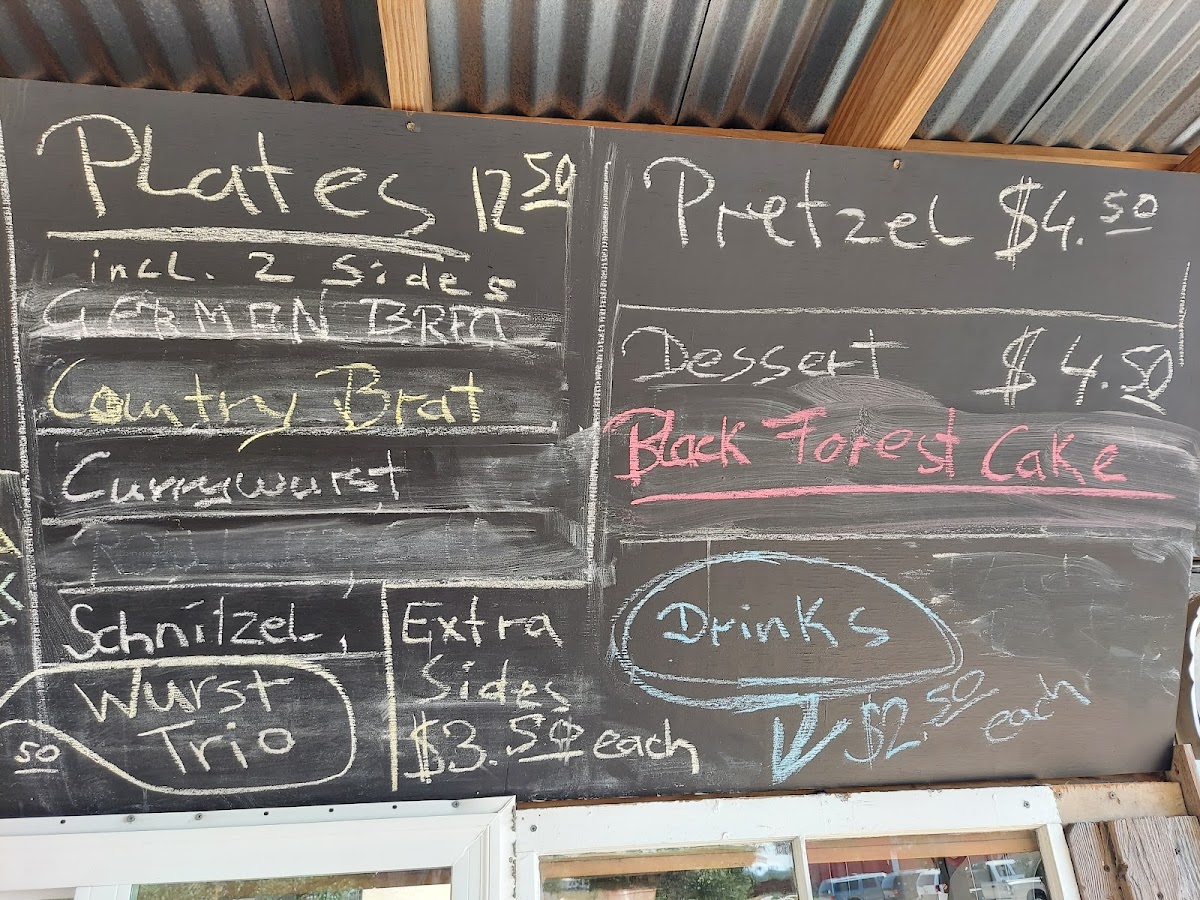 Plates 12 50
incl. 2 sides
GERMAN BRAT
Country Brat
Currywurst
Schnitzel
Wurst
Trio
50
Extra
Sides
$3.50 each
Pretzel $4.50
Dessert $4.50
Black Forest Cake
Drinks
$2.50 each